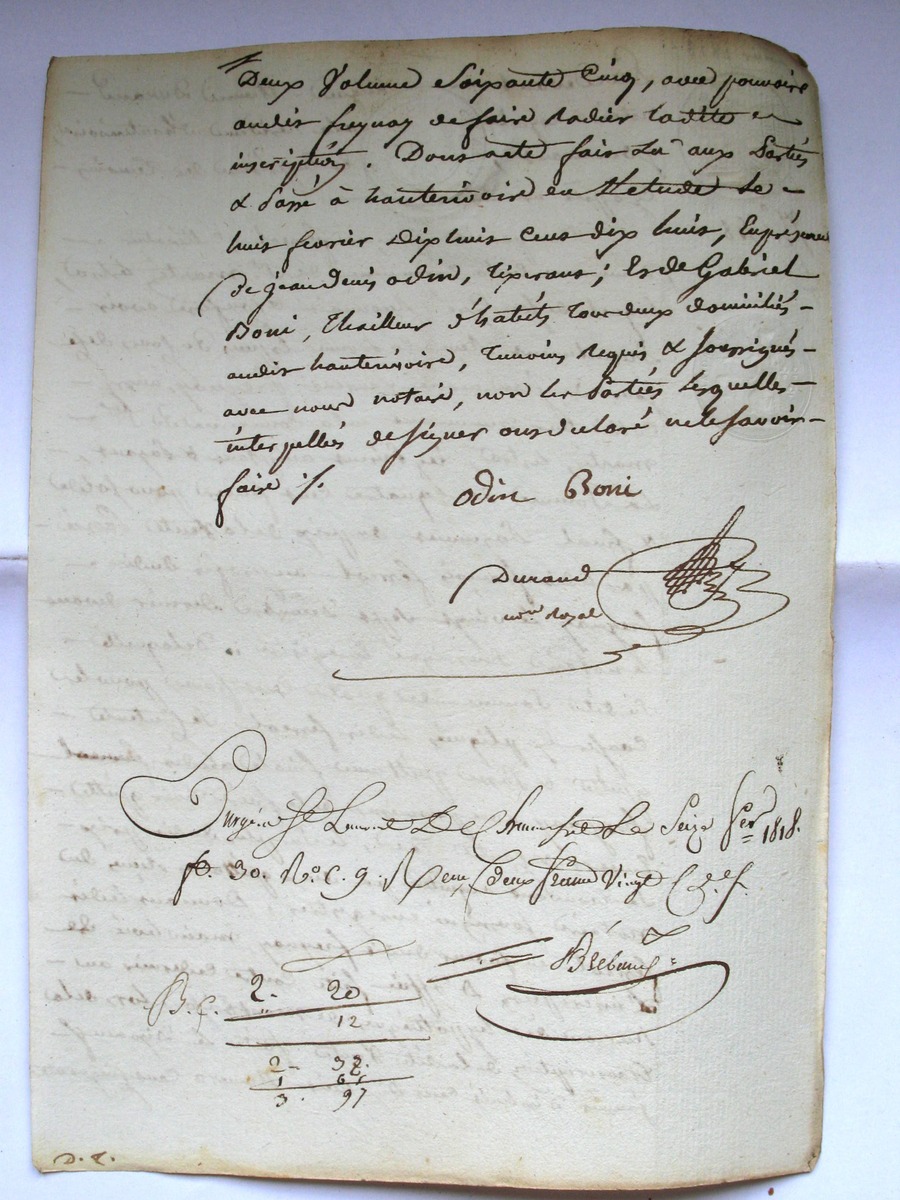 Deux Volume Soixante Cinq, avec pouvoire
audit freynay de faire Radier ladite
inscription. Dont acte fait Lu aux Parties
& Passé à hauterivoire en l'Etude Le
huit fevrier Dixhuit Cent dix huit, En présence
De jean Denis odin, Tixerant; Et de Gabriel
Boni, Thailleur d'habits Tous deux domiciliés
audit hauterivoire, Temoins Requis & soussignés
avec nous notaire, non les Parties Lesquelles
interpellés de signer ont declaré ne le savoir
faire ./.
odin Boni
Durand
not.re Royal
Le Seize fer 1818.
f°. 30. R°. C. 9. deux francs Vingt
B. C. 2. 20
12
2 - 32.
1 65
3. 97
D. T.